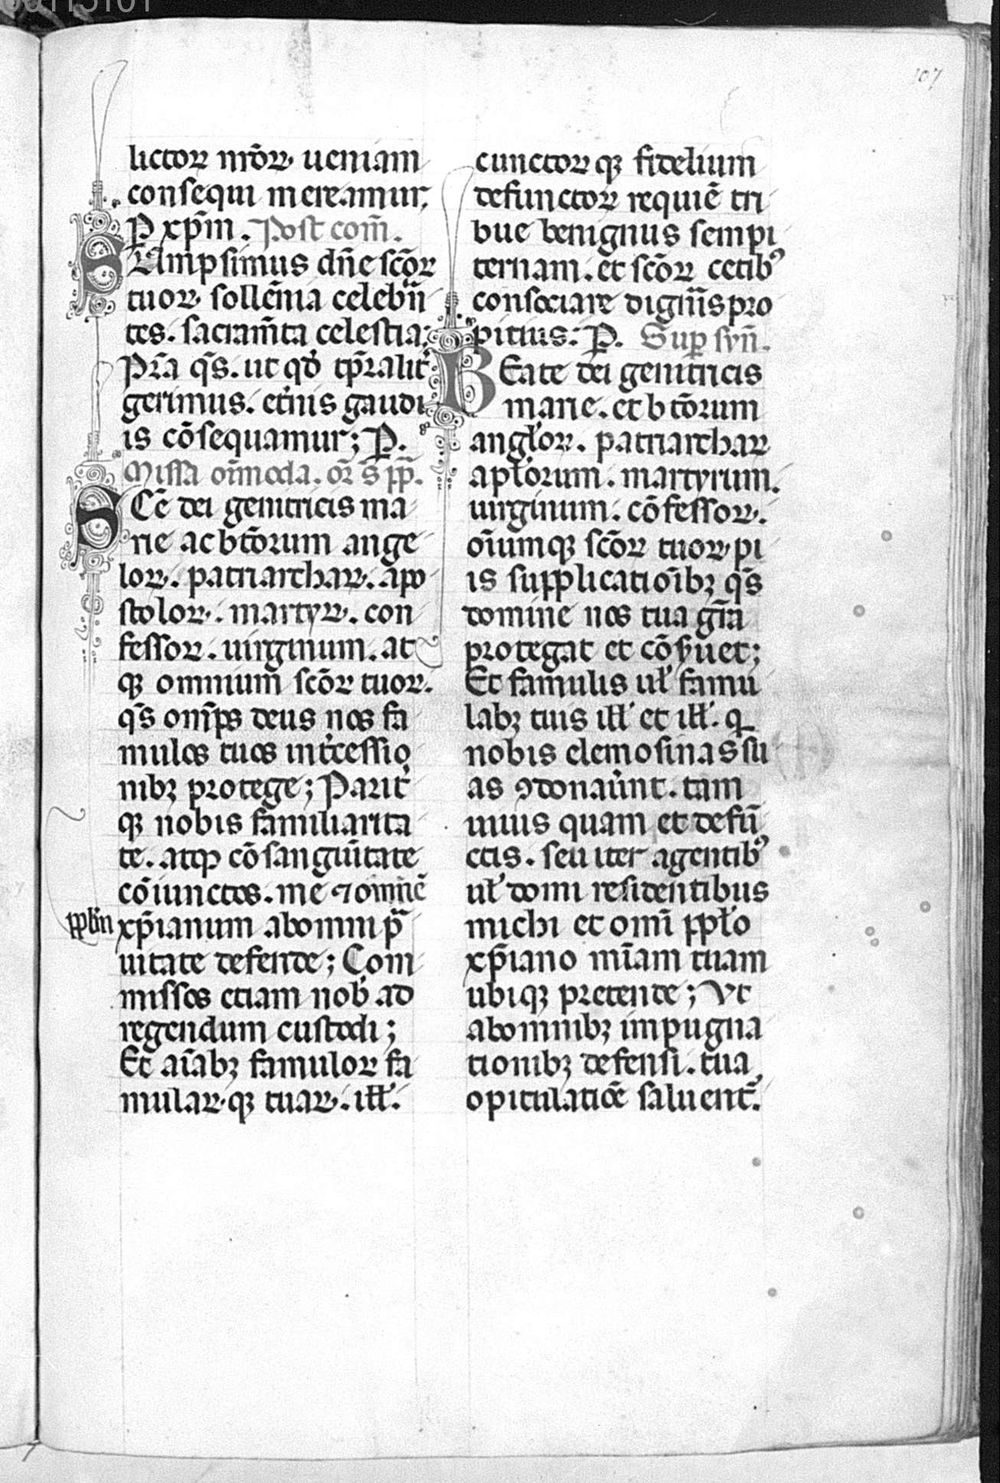 107
lictor mōr. ueniam
consequi mereamur.
P xp̄m. Post com̄.
SAmpsimus dn̄e sc̄or
tuor. sollēnia celebrā
tes. sacram̄ta celestia.
Pr̄a q̄s. ut qđ tp̄ralit̄
gerimus. et̄nis gaudi
is cōsequamur; P.
Missa om̄moda. or̄ s̄ pp̄.
SCē dei genitricis ma
rie ac btōrum ange
lor. patriarchar. apo
stolor. martyr. con
fessor. uirginum. at
qꝫ omnium scōr tuor.
q̄s om̄ps deus nos fa
mulos tuos int̄cessio
nibꝫ protege; Parit̄
qꝫ nobis familiarita
te. atqꝫ cōsanguītate
cōiunctos. me ⁊ omnē
pp̄lm
xp̄ianum abomni p̄
uitate defende; Com
missos etiam nob̄ ad
regendum custodi;
Et aīabꝫ famulor fa
mular.qꝫ tuar. ill̄.
cunctor qꝫ fidelium
defunctor requiē tri
bue benignus sempi
ternam. et scōr cetibꝰ
consociare digneris pro
pitius. P. Sup syn̄.
BEate dei genitricis
marie. et btōrum
angl̄or. patriarchar
apl̄orum. martyrum.
uirginum. cōfessor.
oīumqꝫ scōr tuor. pi
is supplicatiōibꝫ q̄s
domine nos tua gr̄a
protegat et cōs̄uet;
Et famulis ul̄ famu
labꝫ tuis ill̄ et ill̄. q̄
nobis elemosinas su
as ꝯdonauer̄nt. tam
uiuis quam et defū
ctis. seu iter agentibꝰ
ul̄ domi residentibus
michi et omī ppl̄o
xp̄iano mīam tuam
ubiqꝫ pretende; Vt
abomnibꝫ impugna
tionibꝫ defensi. tua
opitulatiōe saluent̄.